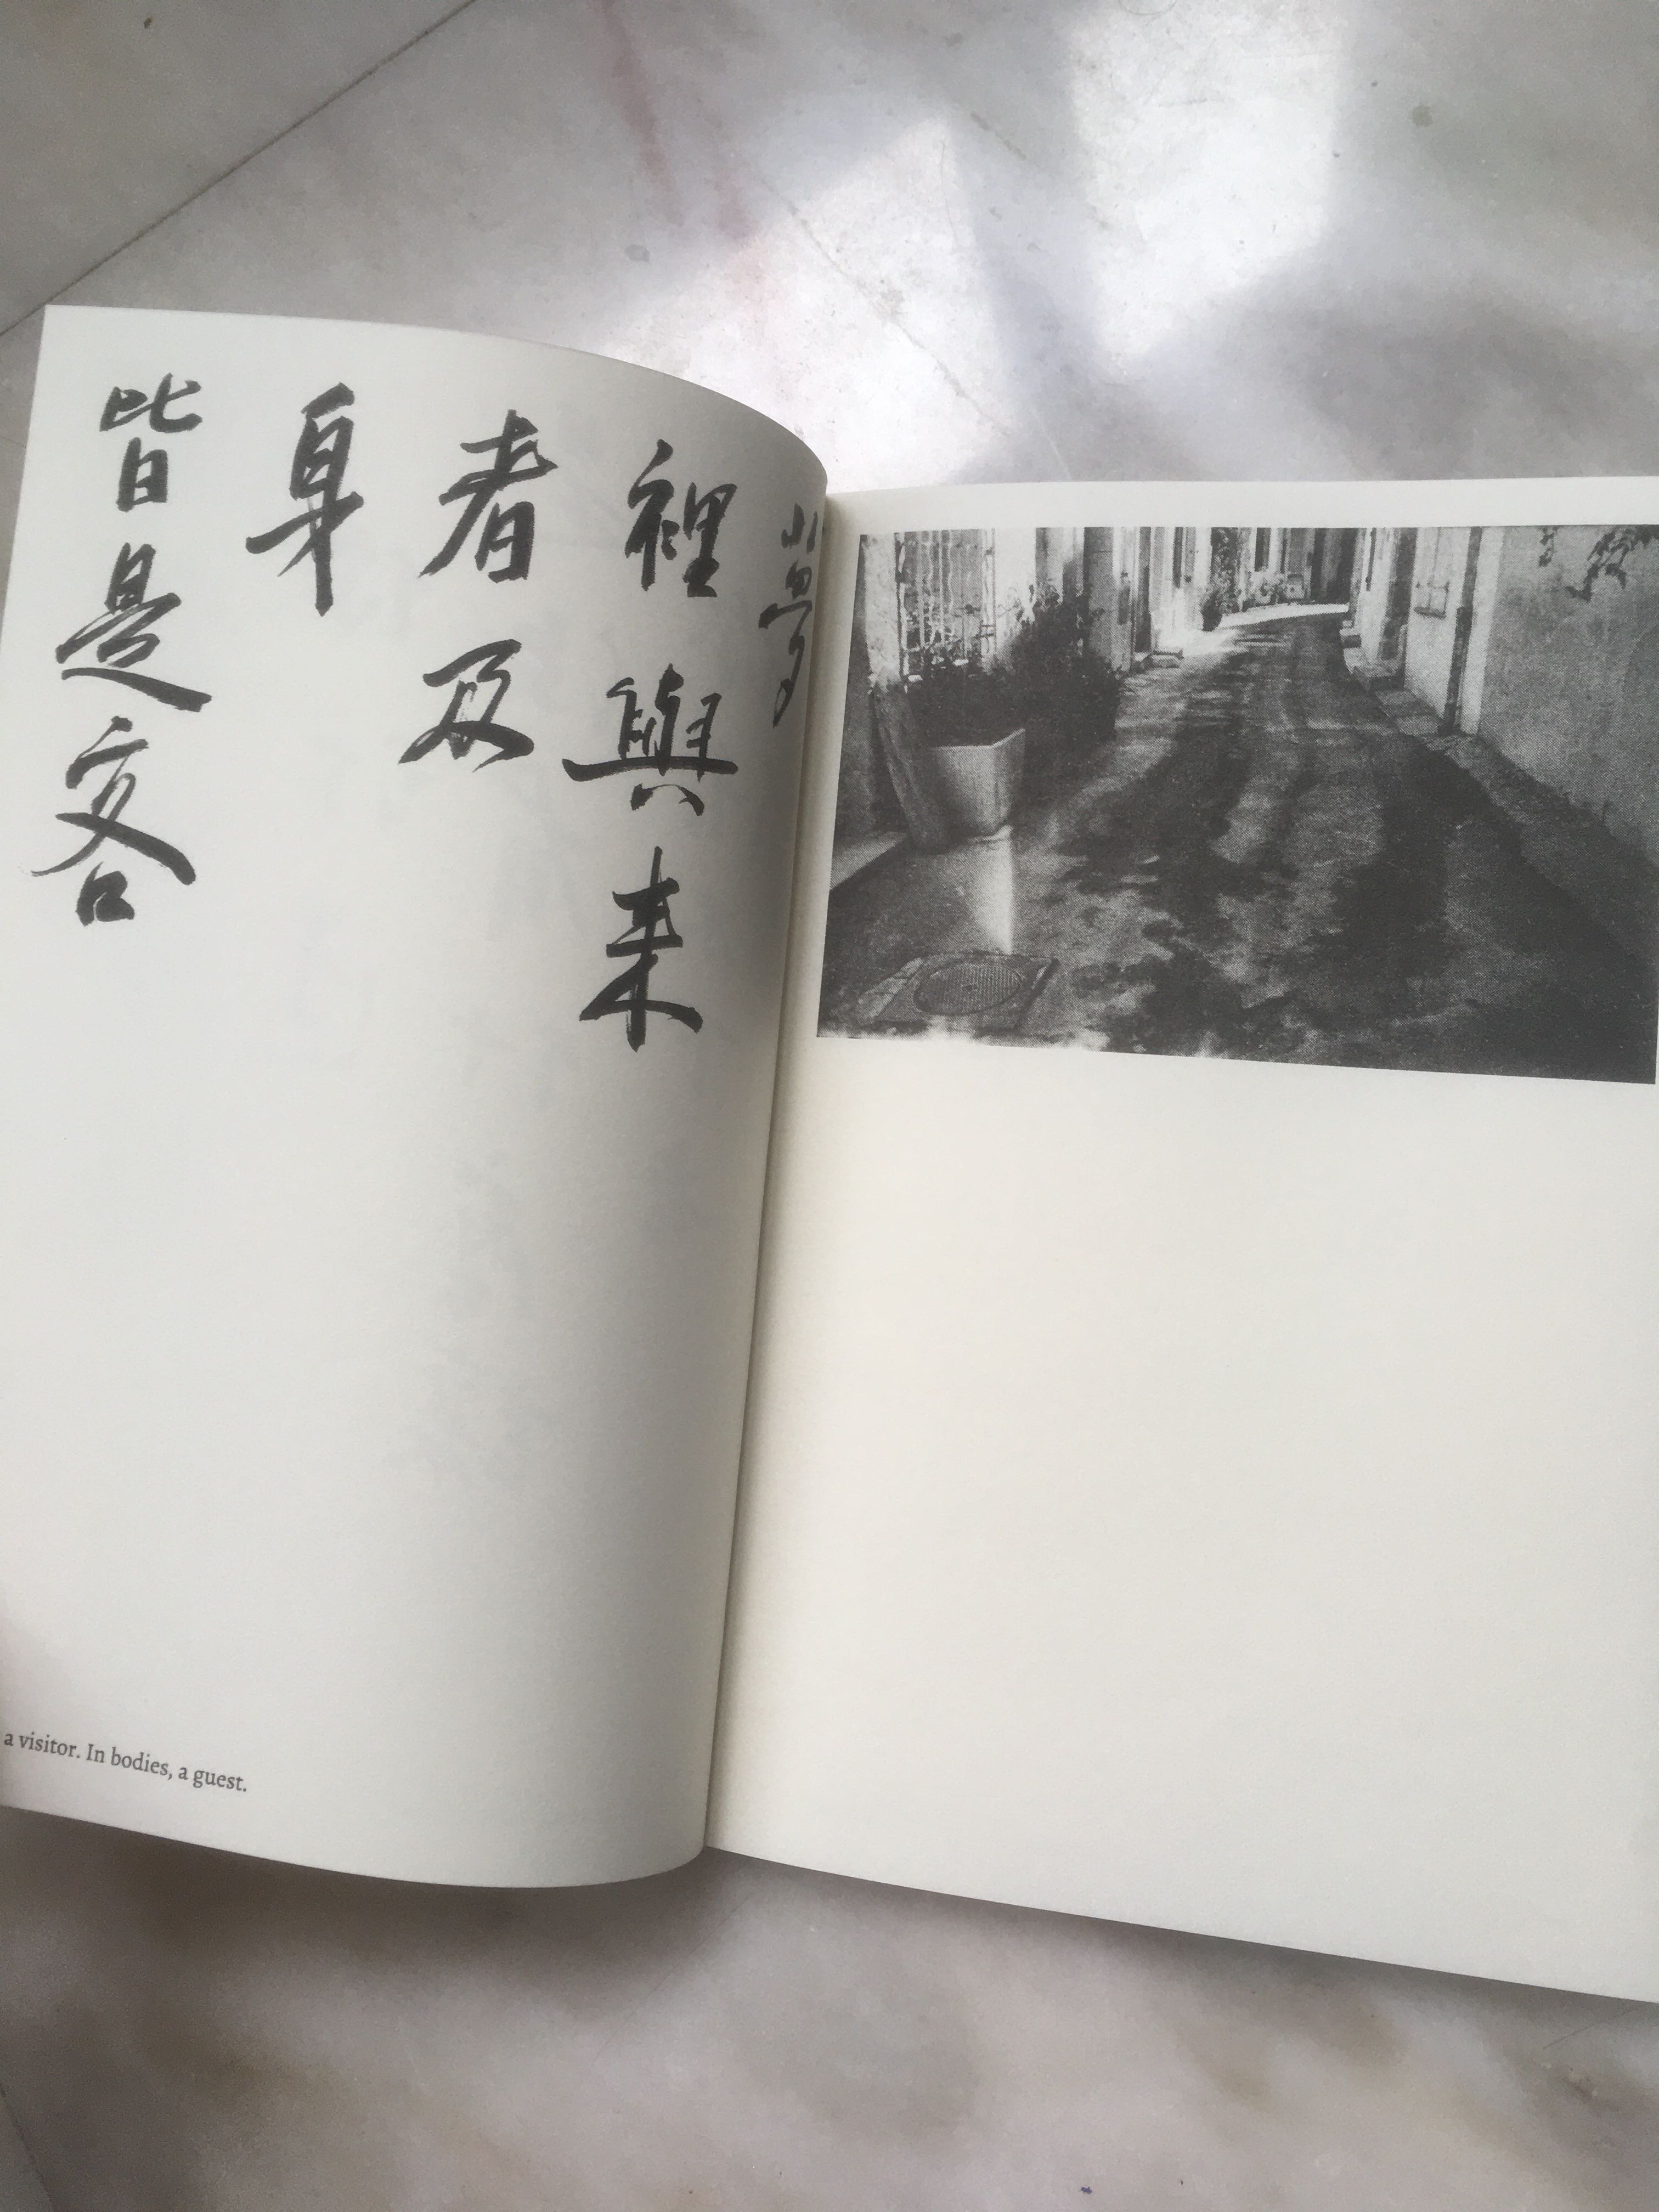 夢
裡與来
者及
身
皆是客
a visitor. In bodies, a guest.